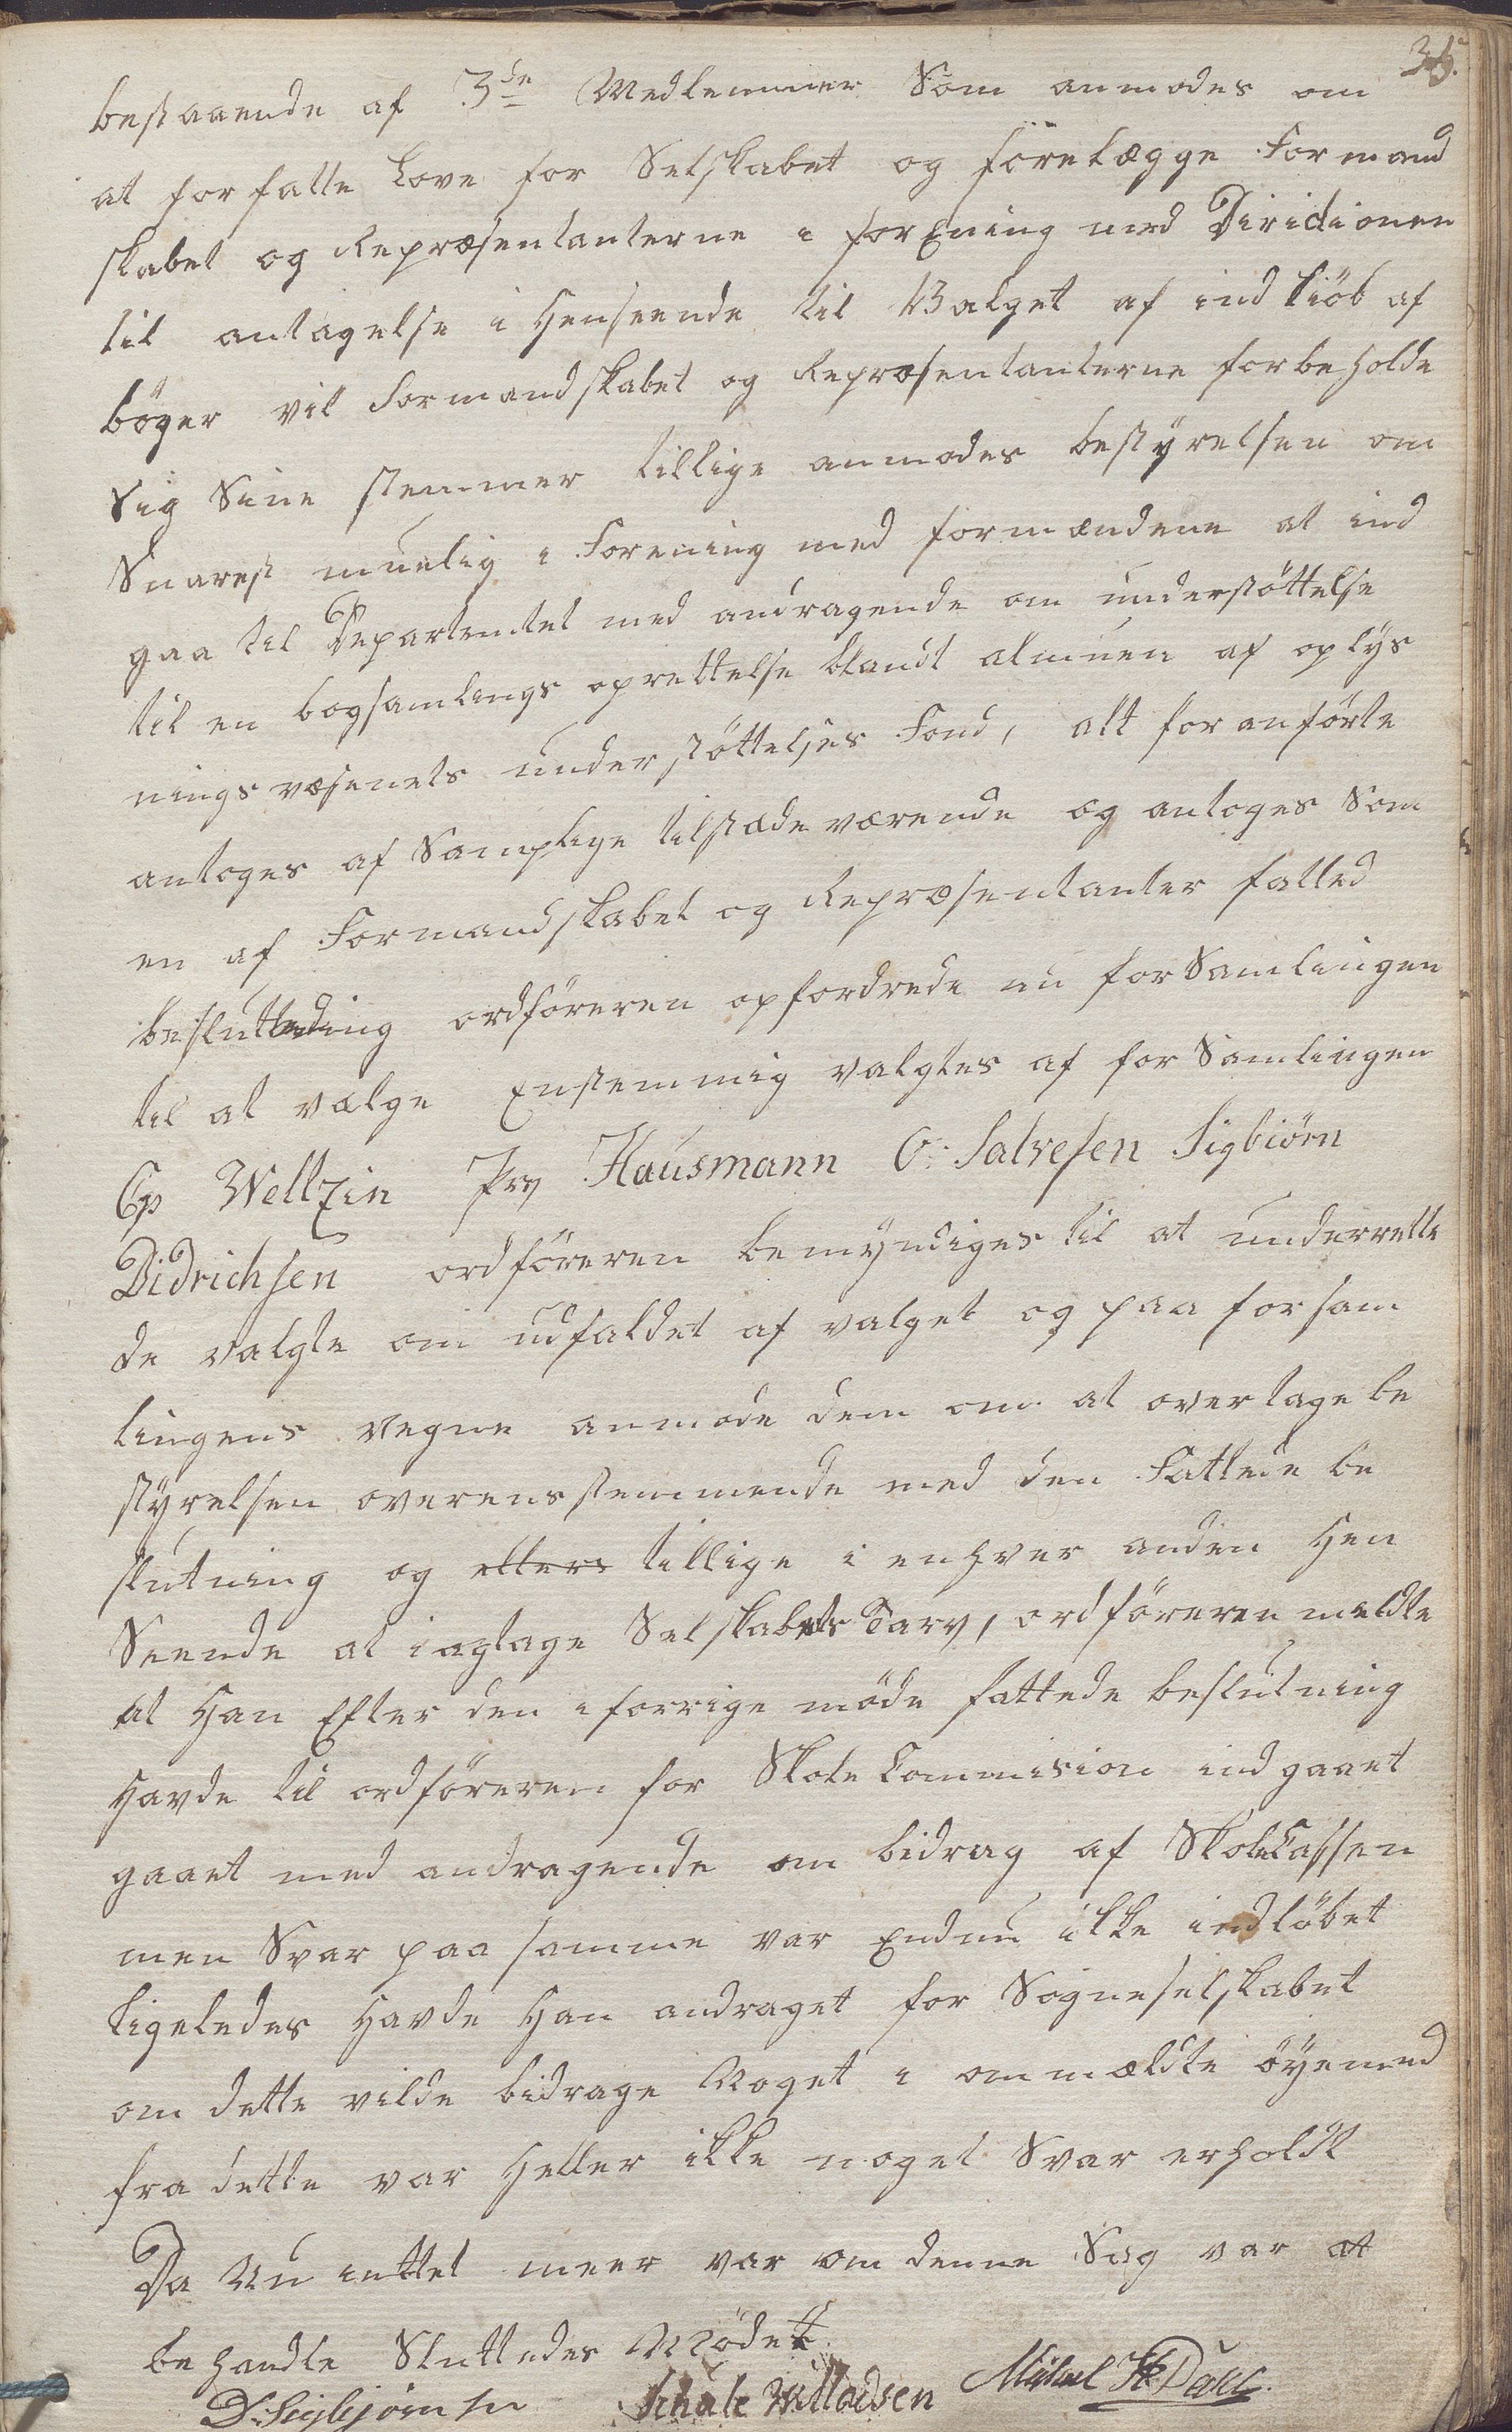 bestaaende af 3de Medlemmer Som anmodes om
at forfatte Love for Selskabet og forelægge Formand
skabet og Repræsentanterne i forEning med Diridionen
til antagelse i Henseende til Valget af ind kiöb af
böger vil Formandskabet og Repræsentanterne forbeholde
Sig Sine stemmer tillige anmodes bestyrelsen om
Snarest muelig i Forening med formændene at ind
gaa til Departemtet med andragende om understöttelse
til en bogsamlings oprettelse blandt almuen af oplys
ningsvæsenets understöttelses Fond, alt foranförte
antoges af Samptlige tilstædeværende og antoges Som
en af Formandskabet og Repræsentanter fatted
beslutteding ordföreren opfordrede nu forSamlingen
til at vælge Enstemmig valgtes af forSamlingen
Cp Weltzin Prv Hausmann O. Salvesen Sigbiörn
Didrichsen ordföreren bemyndiges til at underrette
de valgte om udfaldet af valget og paa forsam
lingens vegne anmode dem om at overtage be
styrelsen overensstemmende med den Fattede be
slutning og ellers tillige i enhver anden Hen
Seende at iagtage Selskabets Tarv, ordföreren meldte
at Han Efter den i forrige möde fattede beslutning
Havde til ordföreren for Skole Commision indgaaet
gaaet med andragende om bidrag af SkoleCassen
men Svar paa samme var Endnu ikke indlöbet
ligeledes Havde Han andraget for Sogneselskabet
om dette vilde bidrage Noget i ommældte öyemed
fra dette var Heller ikke noget Svar erholdt
Da Nu intet meer var om denne Sag var at
behandle Sluttedes Mödet.
D. Sigbjörnsen Schule Willadsen Michael H Dahl.